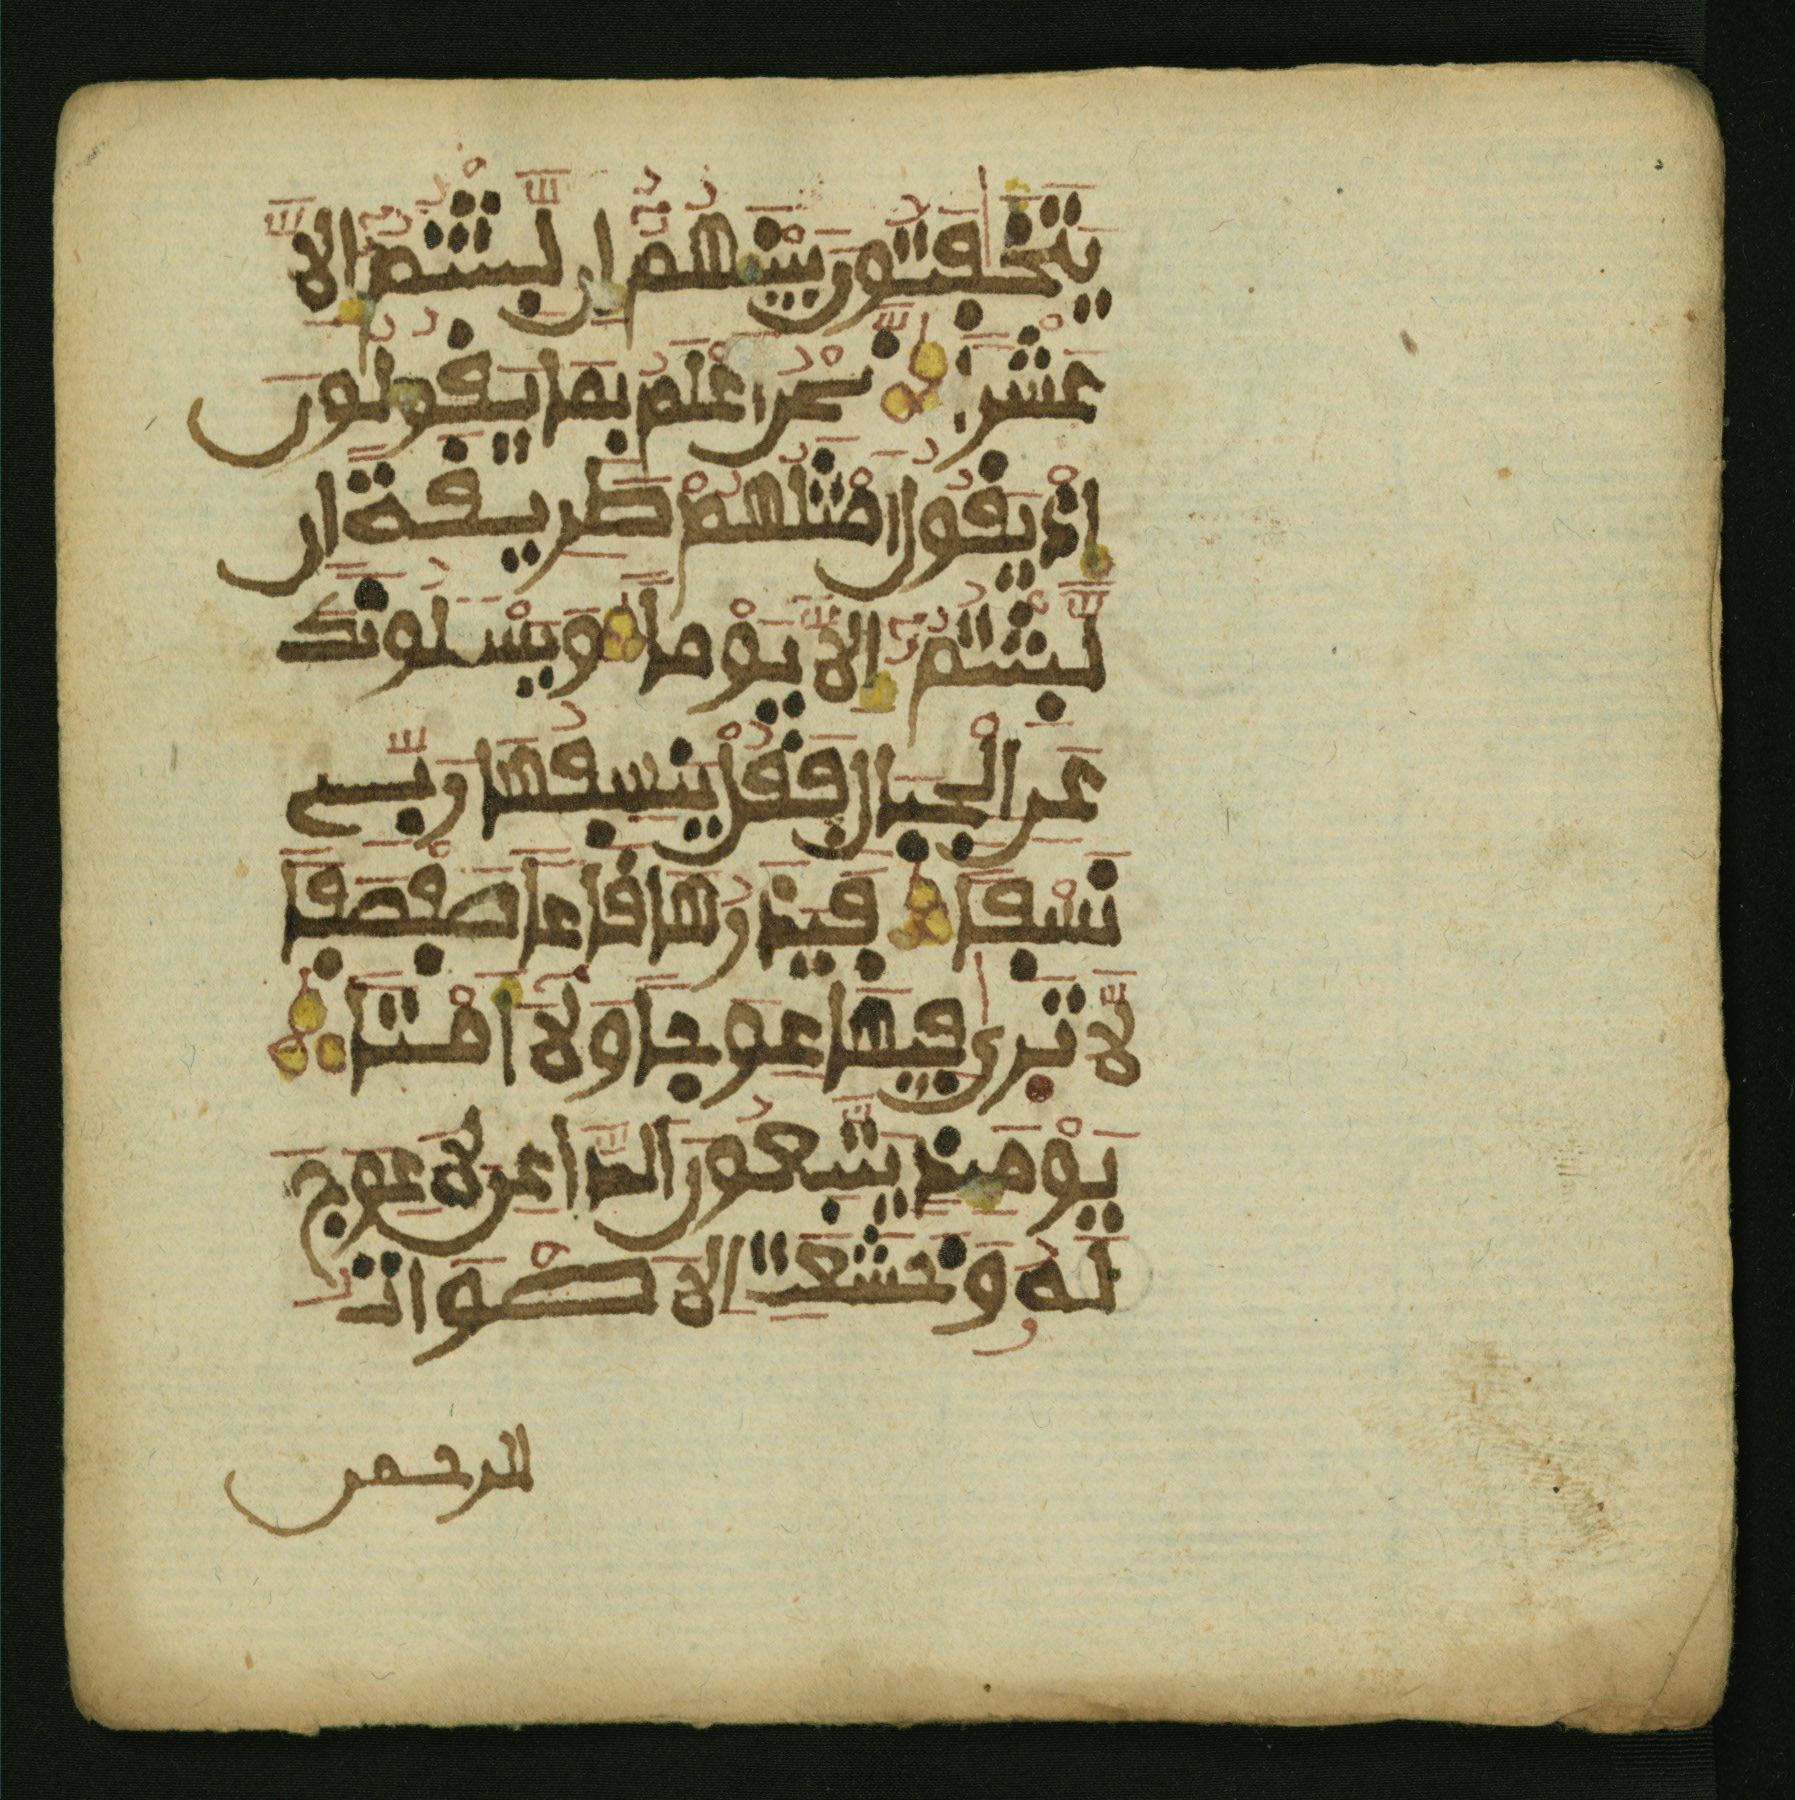 يَتَخَٰفَتُونَ بَيْنَهُمُۥٓ إِن لَّبِثْتُمُۥٓ إِلَّا
عَشْرًا نَّحْنُ أَعْلَمُ بِمَا يَقُولُونَ
إِذْ يَقُولُ أَمْثَلُهُمْ طَرِيقَةً إِن
لَّبِثْتُمُۥٓ إِلَّا يَوْمًا وَيَسْـَٔلُونَكَ
عَنِ الْجِبَالِ فَقُلْ يَنسِفُهَا رَبِّي
نَسْفًا فَيَذَرُهَا قَاعًا صَفْصَفًا
لَا تَرَىٰ فِيهَا عِوَجًا وَلَآ أَمْتًا
يَوْمَئِذٍ يَتَّبِعُونَ الدَّاعِيَ لَا عِوَجَ
لَهُۥ وَخَشَعَتِ الَاصْوَاتُ
للرحمن